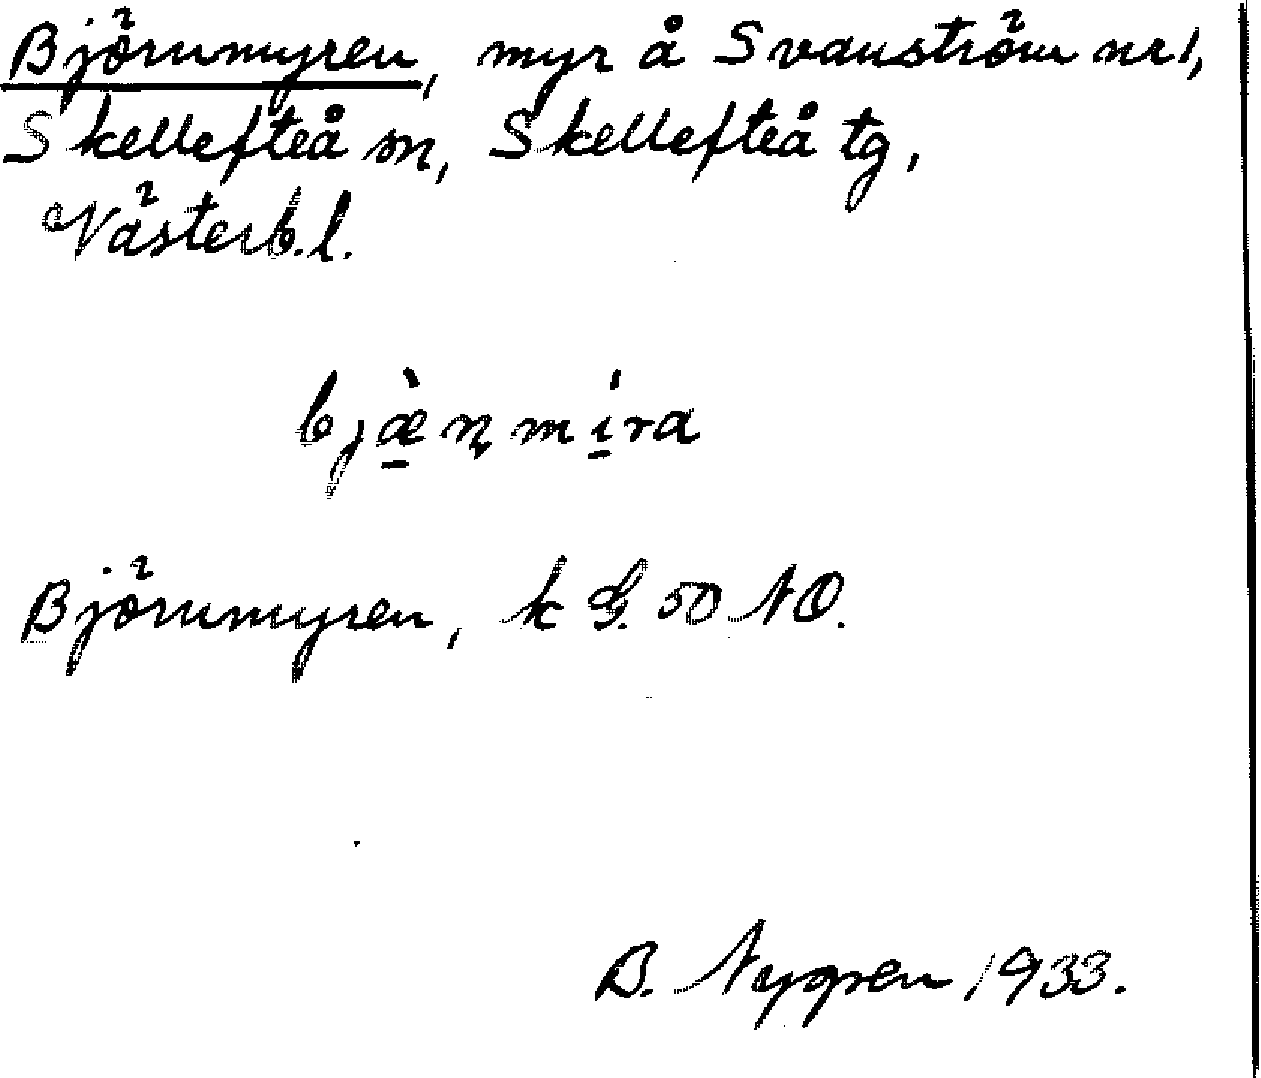 Björnmyren, myr å Svanström nr 1,
Skellefteå sn, Skellefteå tg,
Västerb. l.
bjæ̱̀ṇmí̱ra
Björnmyren, k G. 50 NO.
B. Nygren 1933.